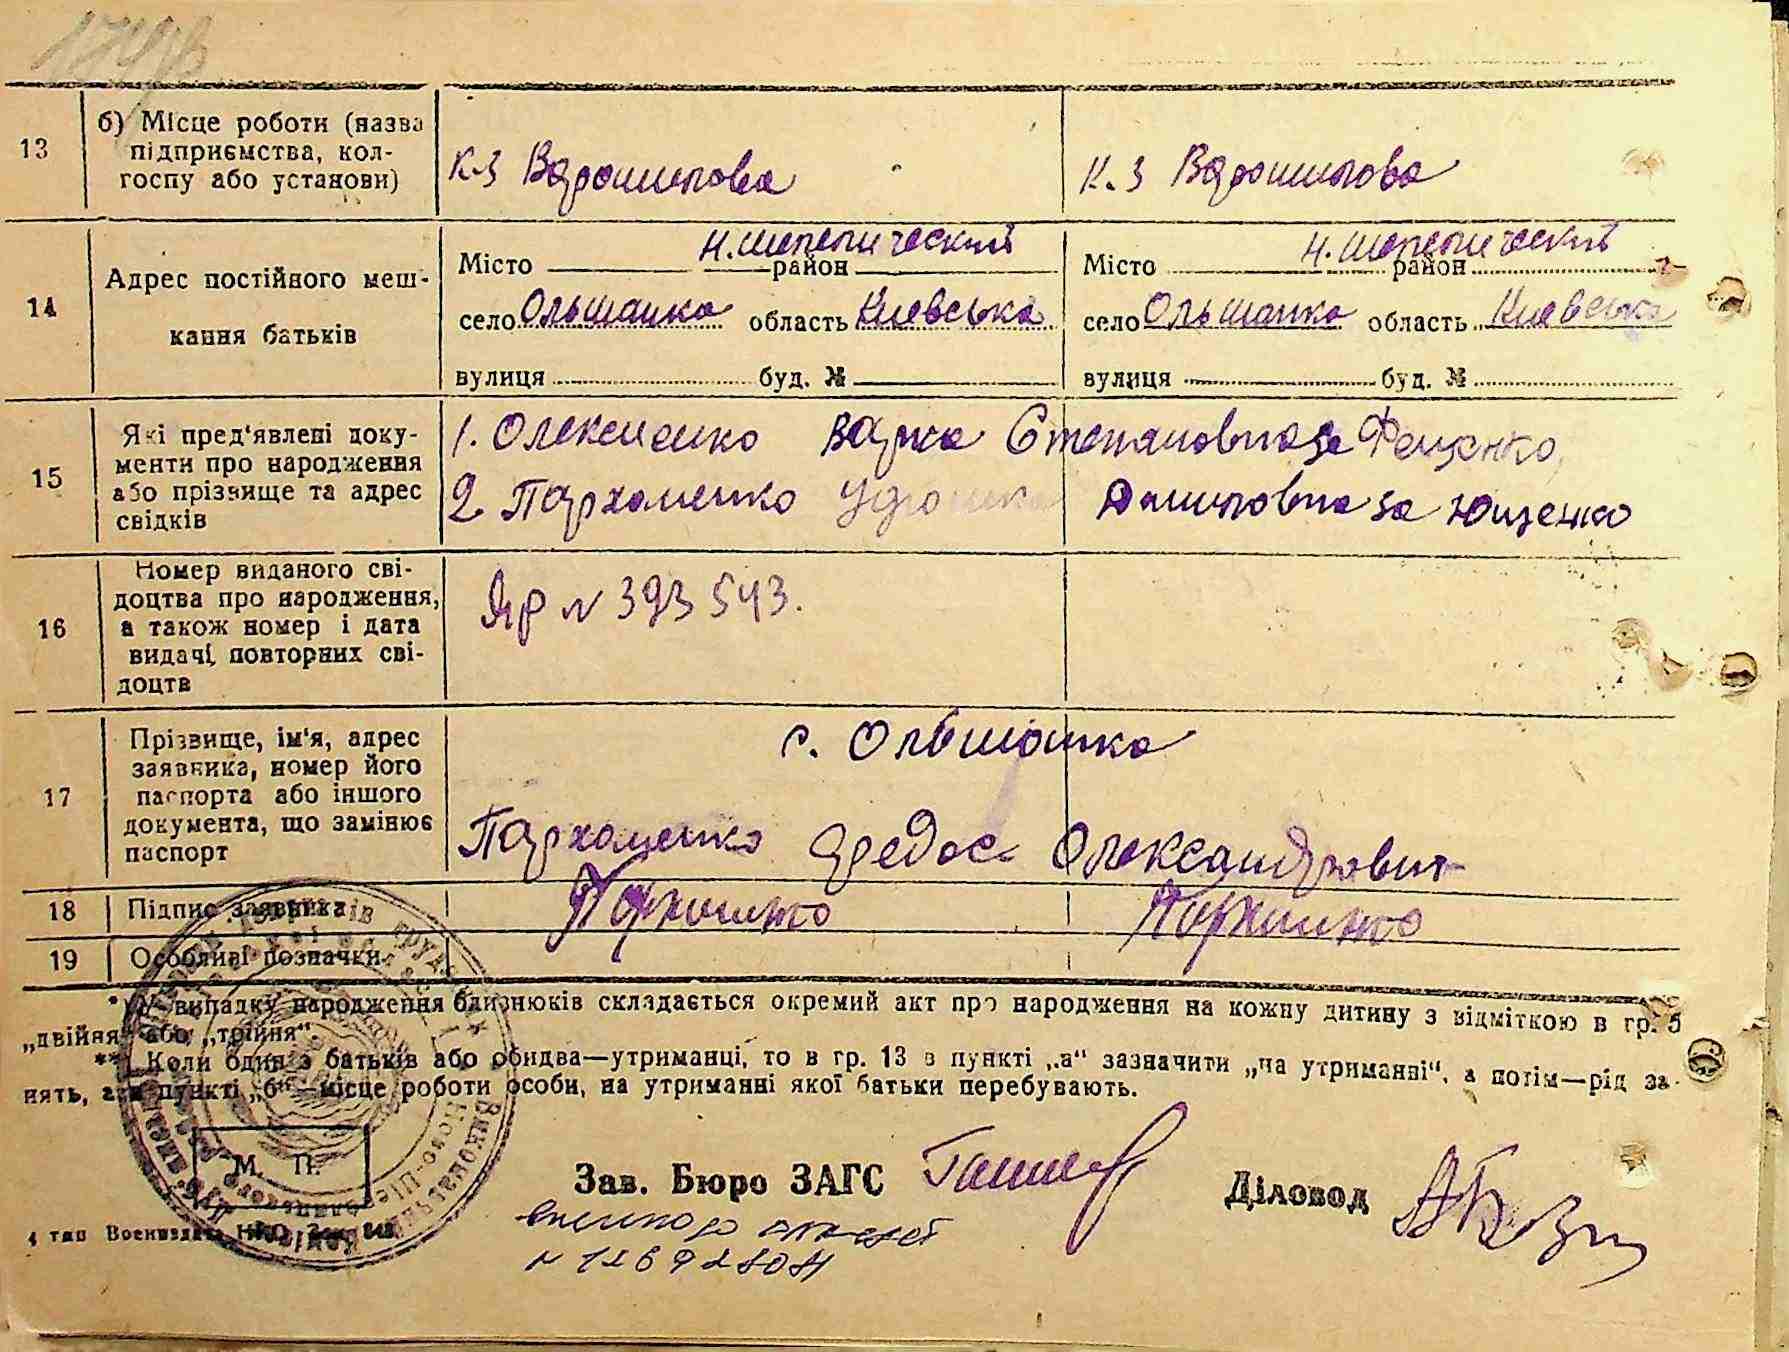 13
б) Місце роботи (назва
підприємства, кол-
госпу або установи)
К-З Ворошилова
К.З Ворошилова
14
Адрес постійного меш-
кання батьків
Місто район Н.Шепелический
село Ольшанка область Киевська
вулиця буд. №
Місто район Н.Шепелический
село Ольшанка область Киевська
вулиця буд. №
15
Які пред'явлені доку-
менти про народження
або прізвище та адрес
свідків
1. Олексиенко Варка Степановна за Фещенко
2 Пархоменко Даниловна за Ющенко
16
Номер виданого сві-
доцтва про народження,
а також номер і дата
видачі, повторних сві-
доцтв
N 393543.
17
Прізвище, ім'я, адрес
заявника, номер його
паспорта або іншого
документа, що замінює
паспорт
с. Ольшанка
Пархоменко Федос Олександрович
18
Підпис заявника
Пархоменко
Пархоменко
19
Особливі позначки
*) У випадку народження близнюків складається окремий акт про народження на кожну дитину з відміткою в гр. 5
„двійня“ або „трійня“
**) Коли один з батьків або обидва—утриманці, то в гр. 13 в пункті „а“ зазначити „на утриманні“, а потім—рід за-
нять, а в пункті „б“—місце роботи особи, на утриманні якої батьки перебувають.
М. П.
Зав. Бюро ЗАГС
Діловод
4 тип Воениздата НКО Зак.